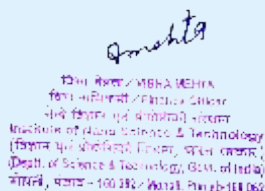 Amehta
विभा मेहता / VIBHA MEHTA
वित्त अधिकारी / Finance Officer
नैनो विज्ञान एवं प्रौद्योगिकी संस्थान
Institute of Nano Science & Technology
(विज्ञान एवं प्रौद्योगिकी विभाग, भारत सरकार)
(Deptt. of Science & Technology, Govt. of India)
मोहाली, पंजाब - / Mohali, Punjab-